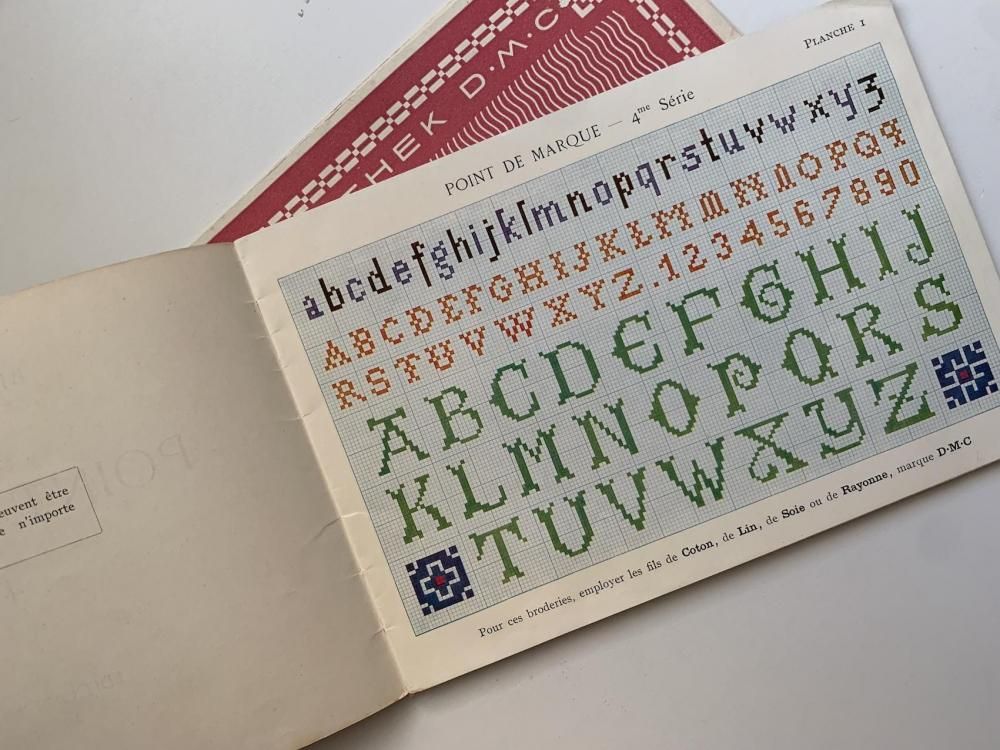 THEK D·M·C
PLANCHE I
POINT DE MARQUE — 4me Série
abcdefghijklmnopqrstuvwxyz
ABCDEFGHIJKLMNOPQ
RSTUVWXYZ.1234567890
ABCDEFGHIJ
KLMNOPQRS
TUVWXYZ
Pour ces broderies, employer les fils de Coton, de Lin, de Soie ou de Rayonne, marque D·M·C
euvent être
n'importe